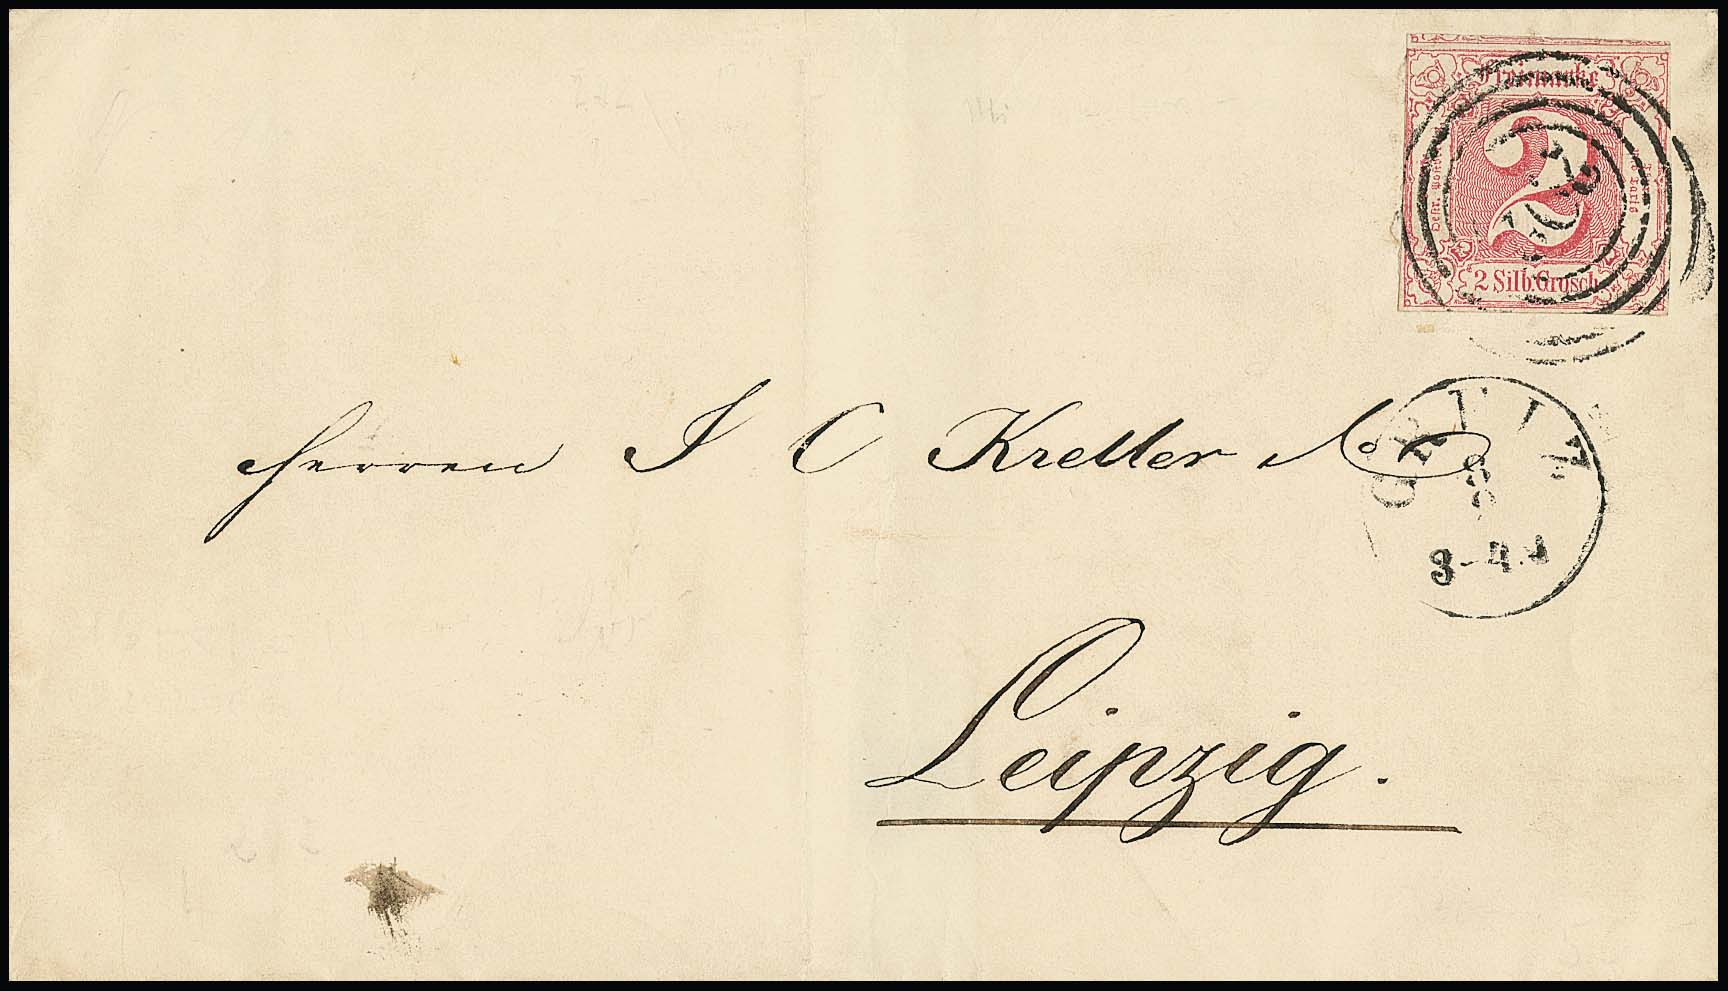 Freimarke
2
2 Silb. Grosch.
Herren J C Kreller
GREIZ
Leipzig.